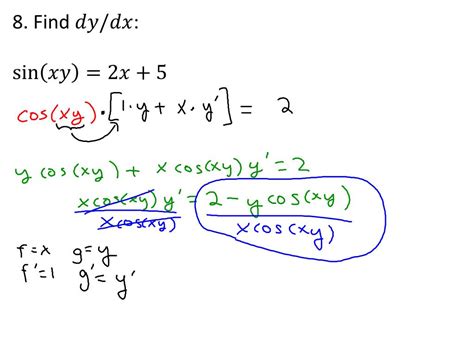 8. Find dy/dx:
sin(xy) = 2x + 5
cos(xy) · [1·y + x·y'] = 2
y cos(xy) + x cos(xy) y' = 2
x cos(xy) y' = 2 - y cos(xy)
x cos(xy) x cos(xy)
f=x g=y
f'=1 g'=y'